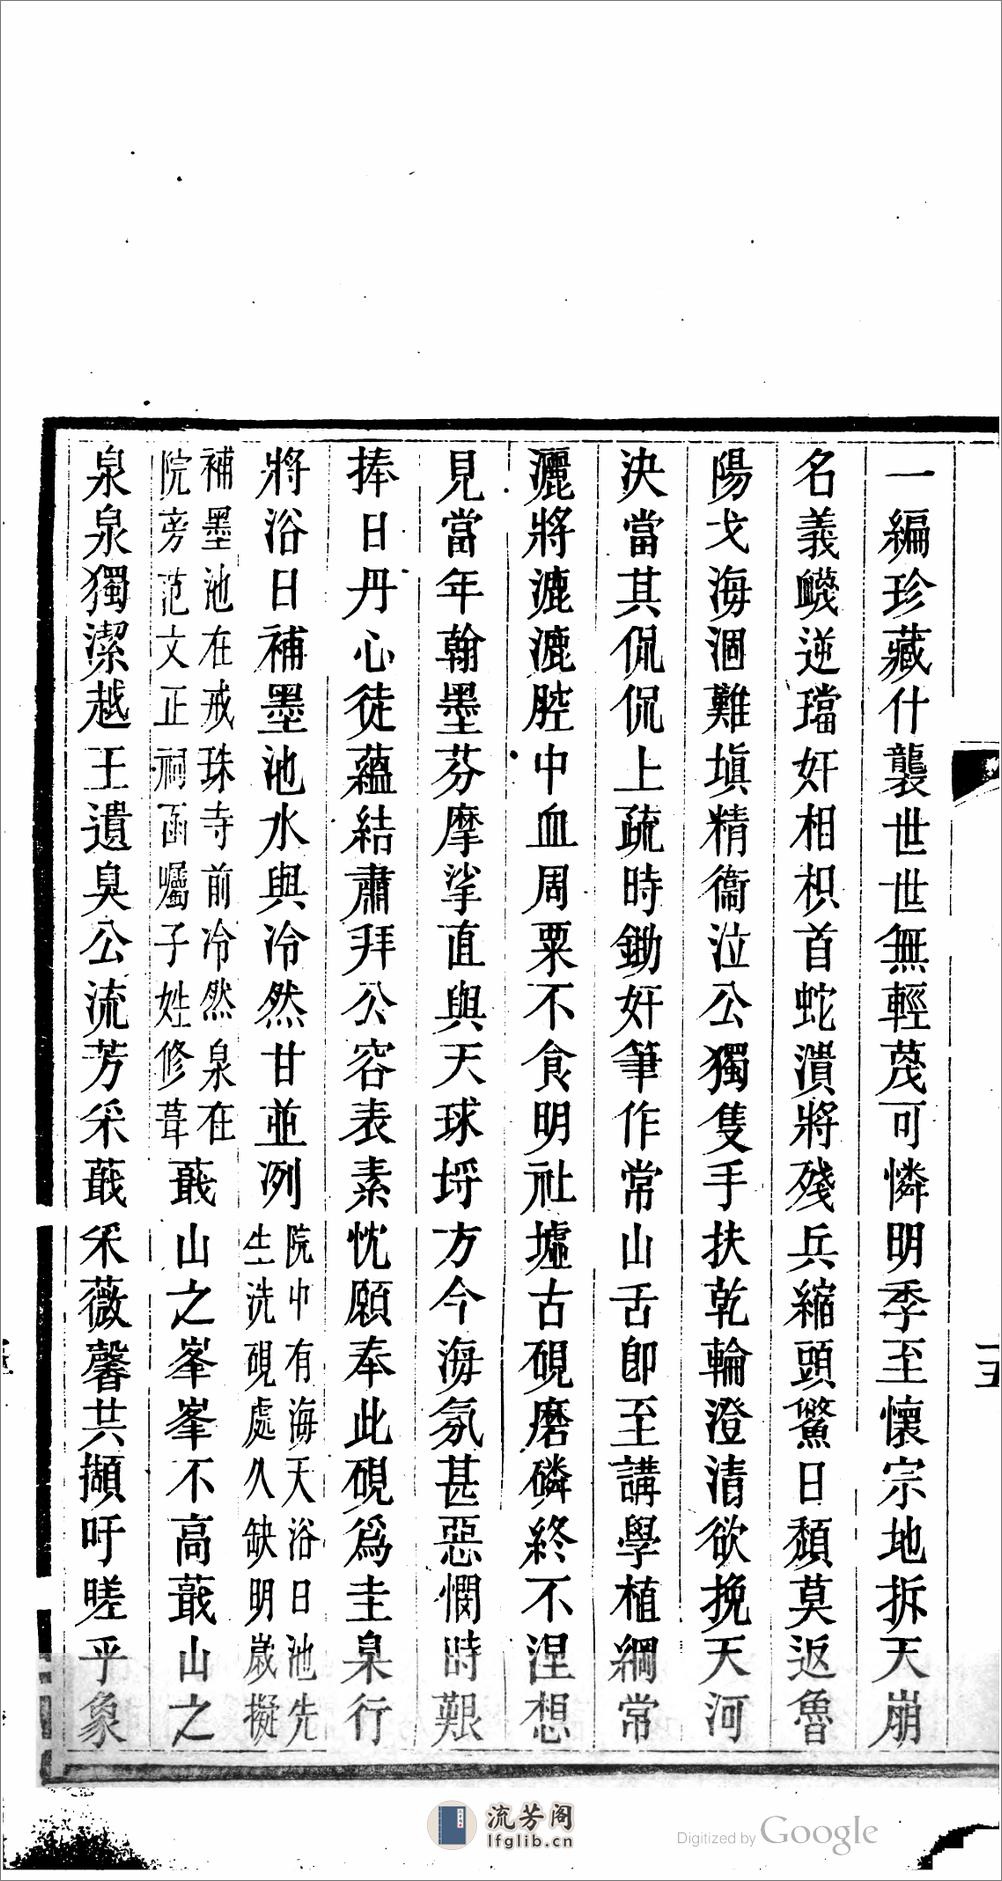 一編珍藏什襲世世無輕蔑可憐明季至懷宗地拆天崩
名義衊逆璫奸相枳首蛇潰將殘兵縮頭鱉日頹莫返魯
陽戈海涸難塡精衞泣公獨隻手扶乾輪澄清欲挽天河
決當其侃侃上疏時鋤奸筆作常山舌卽至講學植綱常
灑將漉漉腔中血周粟不食明社墟古硯磨磷終不涅想
見當年翰墨芬摩挲直與天球埓方今海氛甚惡憫時艱
捧日丹心徒蘊結肅拜公容表素忱願奉此硯爲圭臬行
將浴日補墨池水與冷然甘並冽院中有海天浴日池先
生洗硯處久缺明歲擬
補墨池在戒珠寺前冷然泉在
院旁范文正祠函囑子姓修葺蕺山之峯峯不高蕺山之
泉泉獨潔越王遺臭公流芳采蕺采薇馨共擷吁嗟乎象
流芳阁
lfglib.cn
Digitized by Google